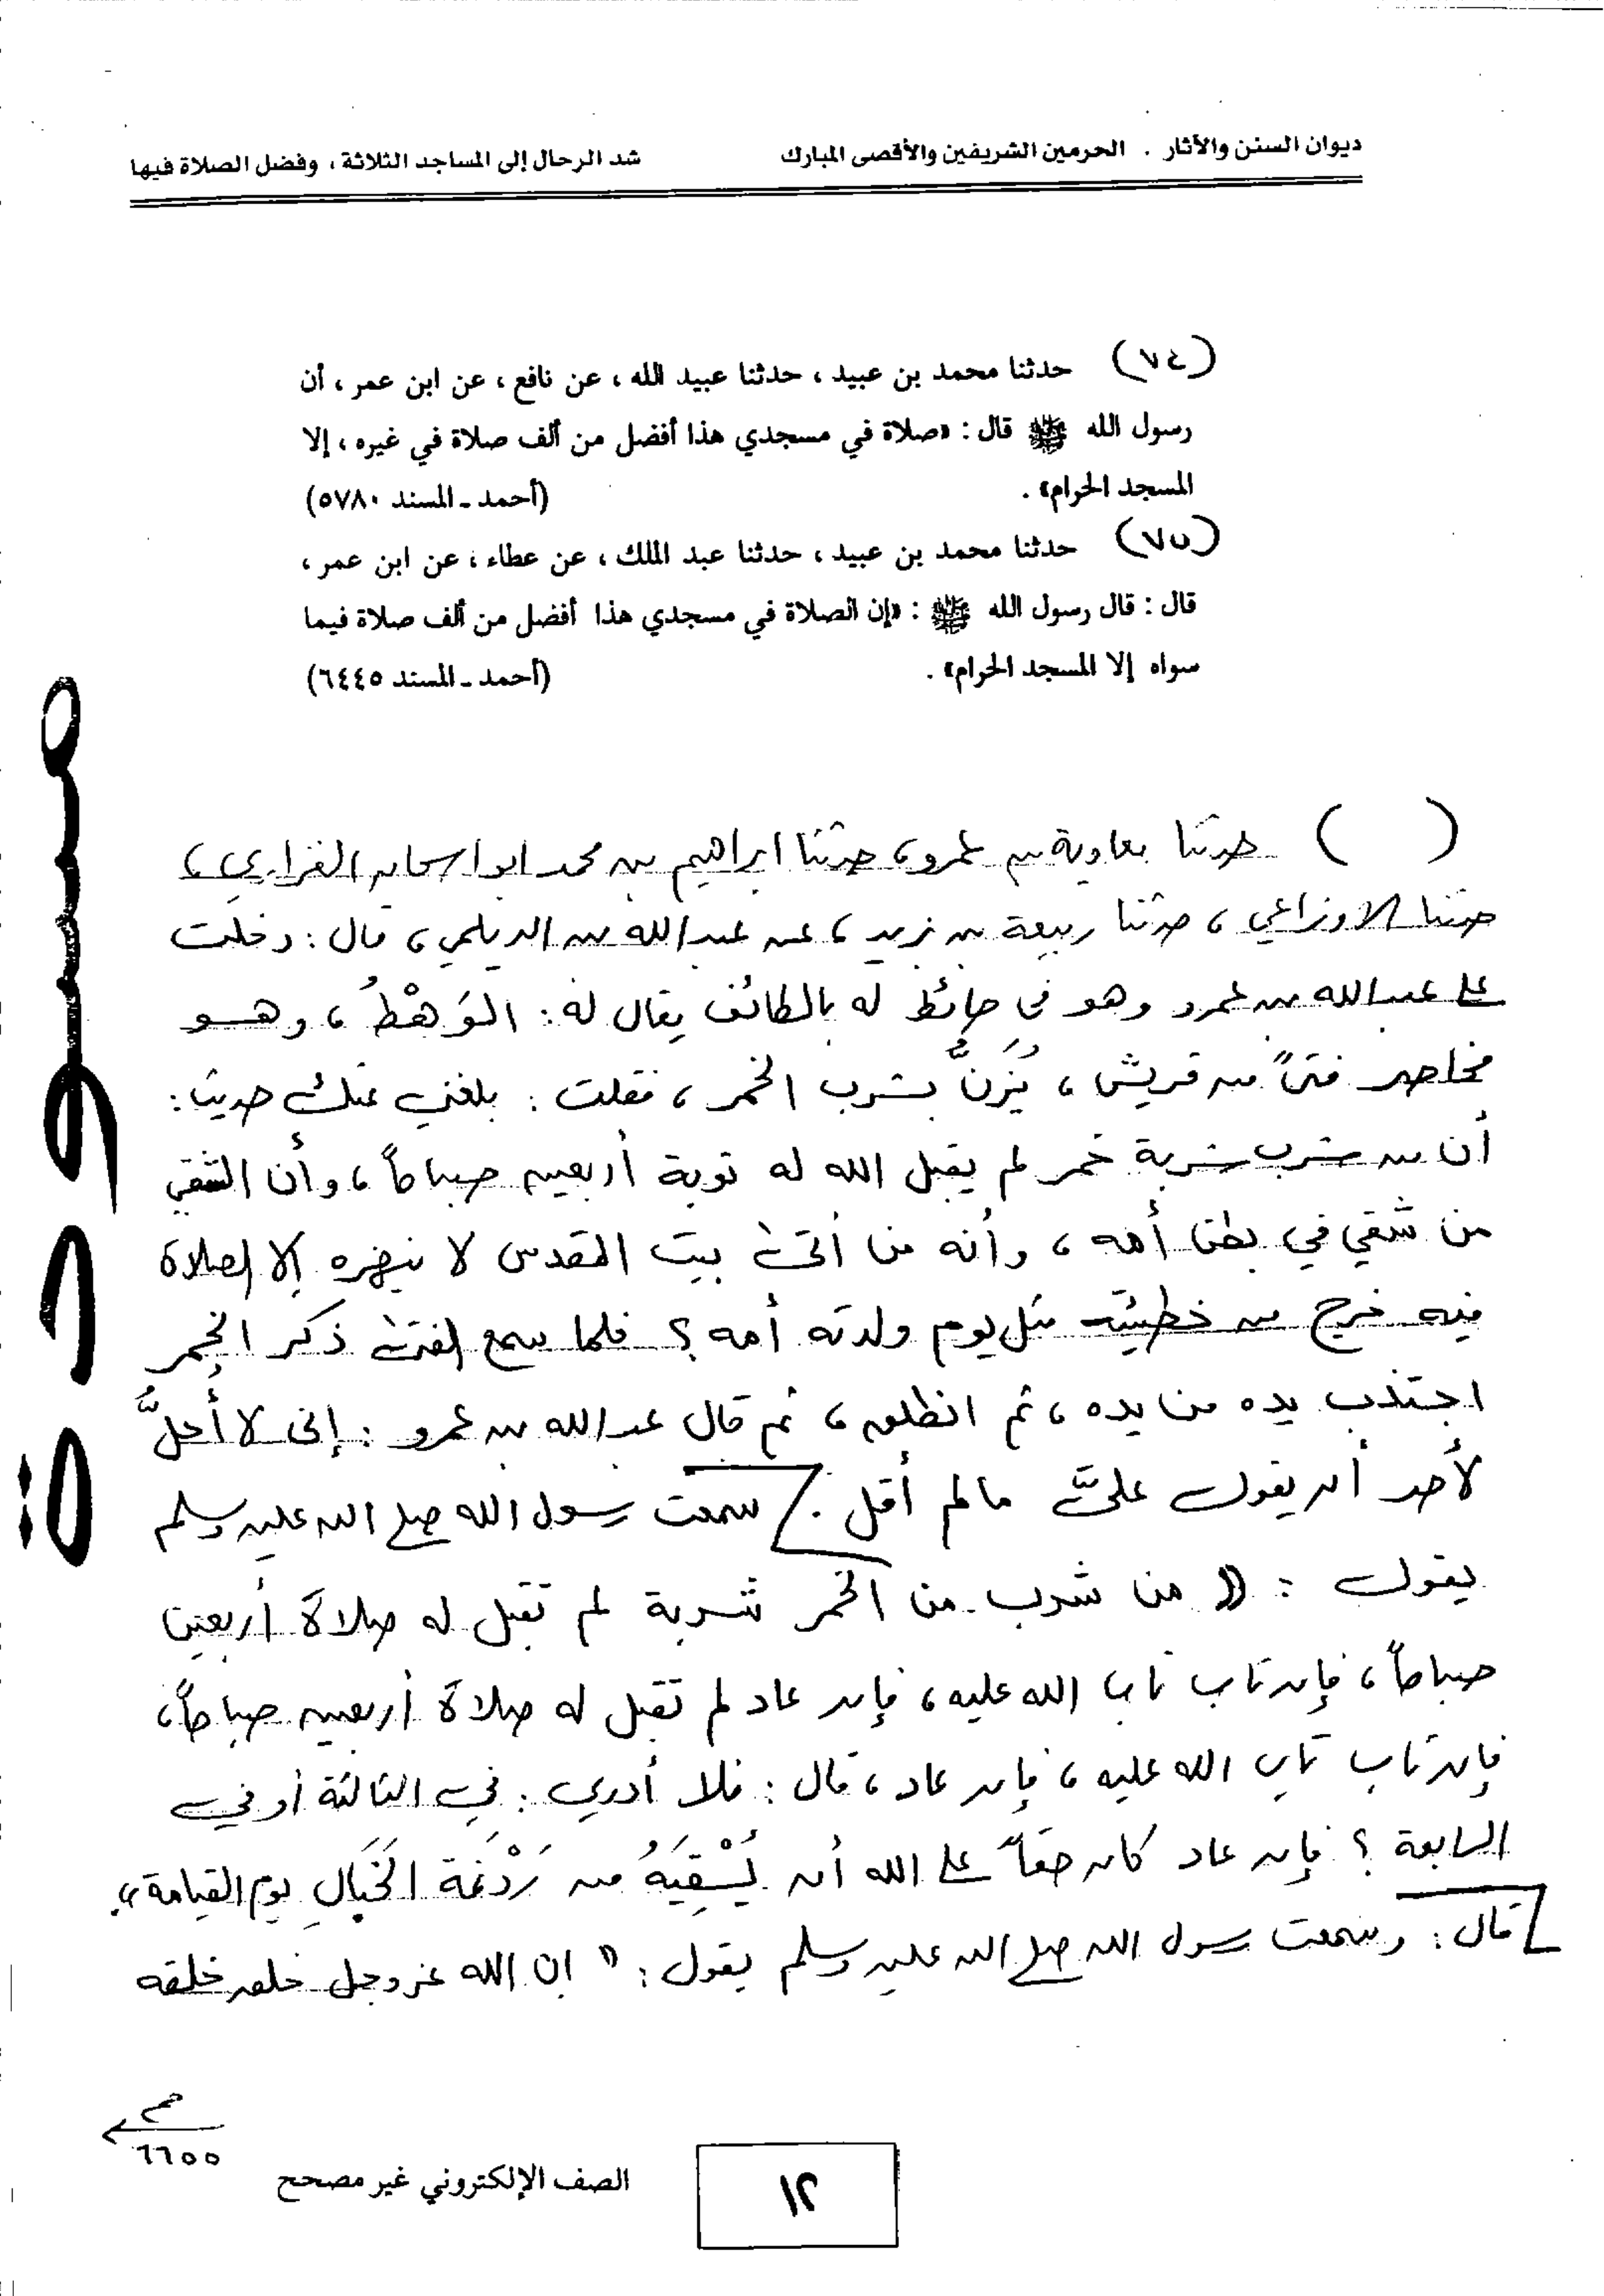 ديوان السنن والآثار . الحرمين الشريفين والأقصى المبارك شد الرحال إلى المساجد الثلاثة ، وفضل الصلاة فيها
(٧٤) حدثنا محمد بن عبيد ، حدثنا عبيد الله ، عن نافع ، عن ابن عمر ، أن
رسول الله ﷺ قال : «صلاة في مسجدي هذا أفضل من ألف صلاة في غيره ، إلا
المسجد الحرام» . (أحمد ـ المسند ٥٧٨٠)
(٧٥) حدثنا محمد بن عبيد ، حدثنا عبد الملك ، عن عطاء ، عن ابن عمر ،
قال : قال رسول الله ﷺ : «إن الصلاة في مسجدي هذا أفضل من ألف صلاة فيما
سواه إلا المسجد الحرام» . (أحمد ـ المسند ٦٤٤٥)
( ) حدثنا معاوية بن عمرو ، حدثنا ابراهيم بن محمد ابو اسحاق الفزاري ،
حدثنا الاوزاعي ، حدثنا ربيعة بن يزيد ، عن عبد الله بن الديلمي ، قال : دخلت
على عبد الله بن عمرو وهو في حائط له بالطائف يقال له : الوَهْطُ ، وهو
مخاصر فتىً من قريش ، يُزَنُّ بشرب الخمر ، فقلت : بلغني عنك حديث :
أن من شرب شربة خمر لم يقبل الله له توبة أربعين صباحاً ، وأن الشقي
من شقي في بطن أمه ، وأنه من أتى بيت المقدس لا ينهزه إلا الصلاة
فيه خرج من خطيئته مثل يوم ولدته أمه ؟ فلما سمع الفتى ذكر الخمر
اجتذب يده من يده ، ثم انطلق ، ثم قال عبد الله بن عمرو : إنى لا أُحِلُّ
لأحد أن يقول عليَّ ما لم أقل . سمعت رسول الله صلى الله عليه وسلم
يقول : « من شرب من الخمر شربة لم تقبل له صلاة أربعين
صباحاً ، فإن تاب تاب الله عليه ، فإن عاد لم تقبل له صلاة أربعين صباحاً ،
فإن تاب تاب الله عليه ، فإن عاد ، قال : فلا أدري : في الثالثة أو في
الرابعة ؟ فإن عاد كان حقاً على الله أن يُسْقِيَهُ من رَدْغَة الخَبَالِ يوم القيامة » .
قال : وسمعت رسول الله صلى الله عليه وسلم يقول : « ان الله عز وجل خلق خلقه
٦٦٥٥
الصف الإلكتروني غير مصحح
١٢
مسودة :